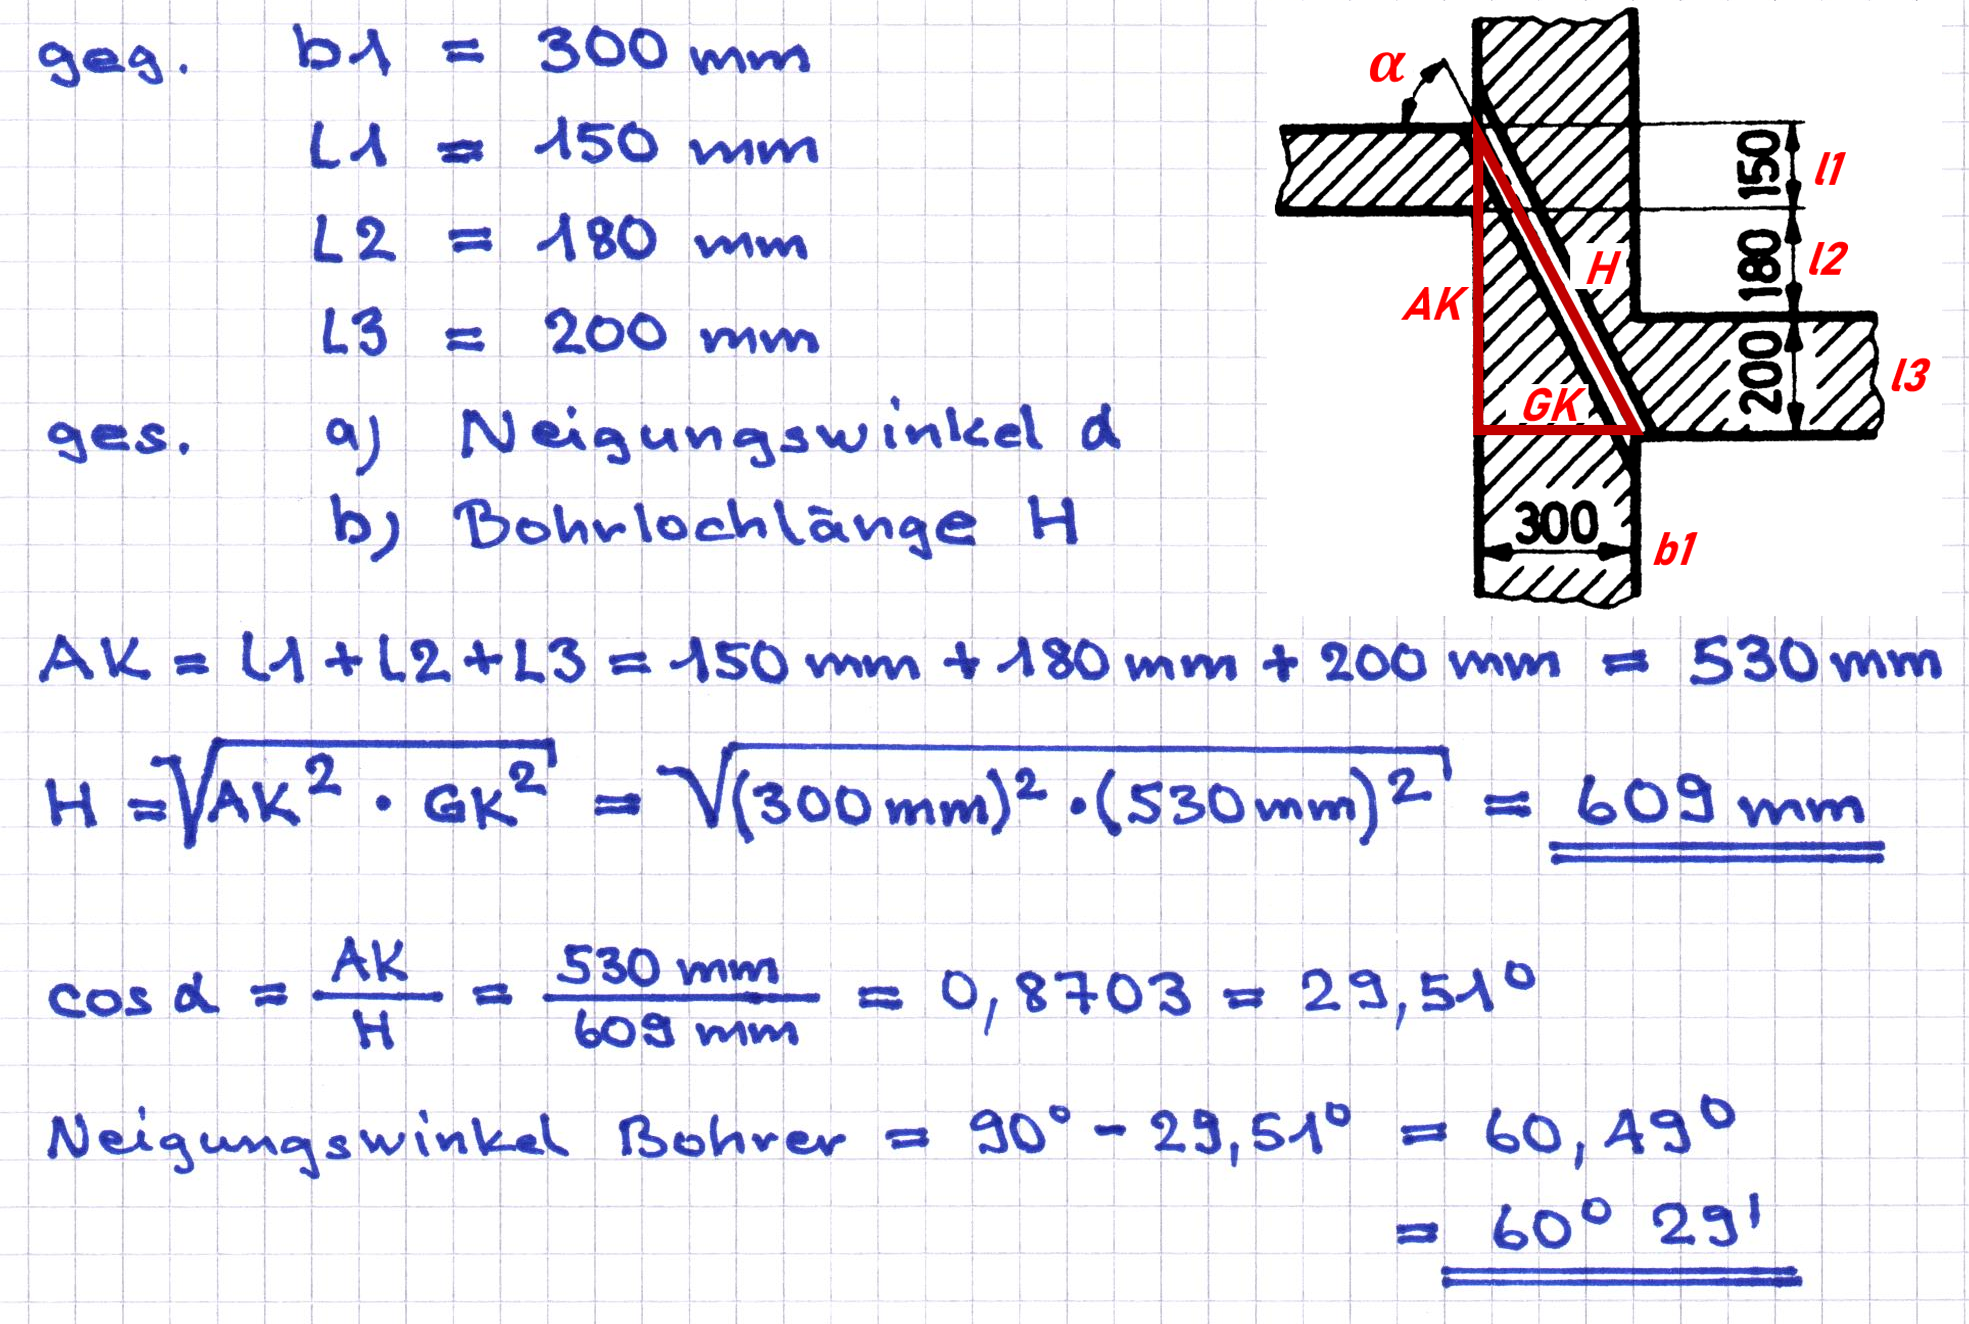 geg. b1 = 300 mm
L1 = 150 mm
L2 = 180 mm
L3 = 200 mm
ges. a) Neigungswinkel α
b) Bohrlochlänge H
α
150 l1
180 l2
200 l3
H
AK
GK
300 b1
AK = L1 + L2 + L3 = 150 mm + 180 mm + 200 mm = 530 mm
H = √AK² · GK² = √(300 mm)² · (530 mm)² = 609 mm
cos α = AK / H = 530 mm / 609 mm = 0,8703 = 29,51°
Neigungswinkel Bohrer = 90° - 29,51° = 60,49°
= 60° 29'